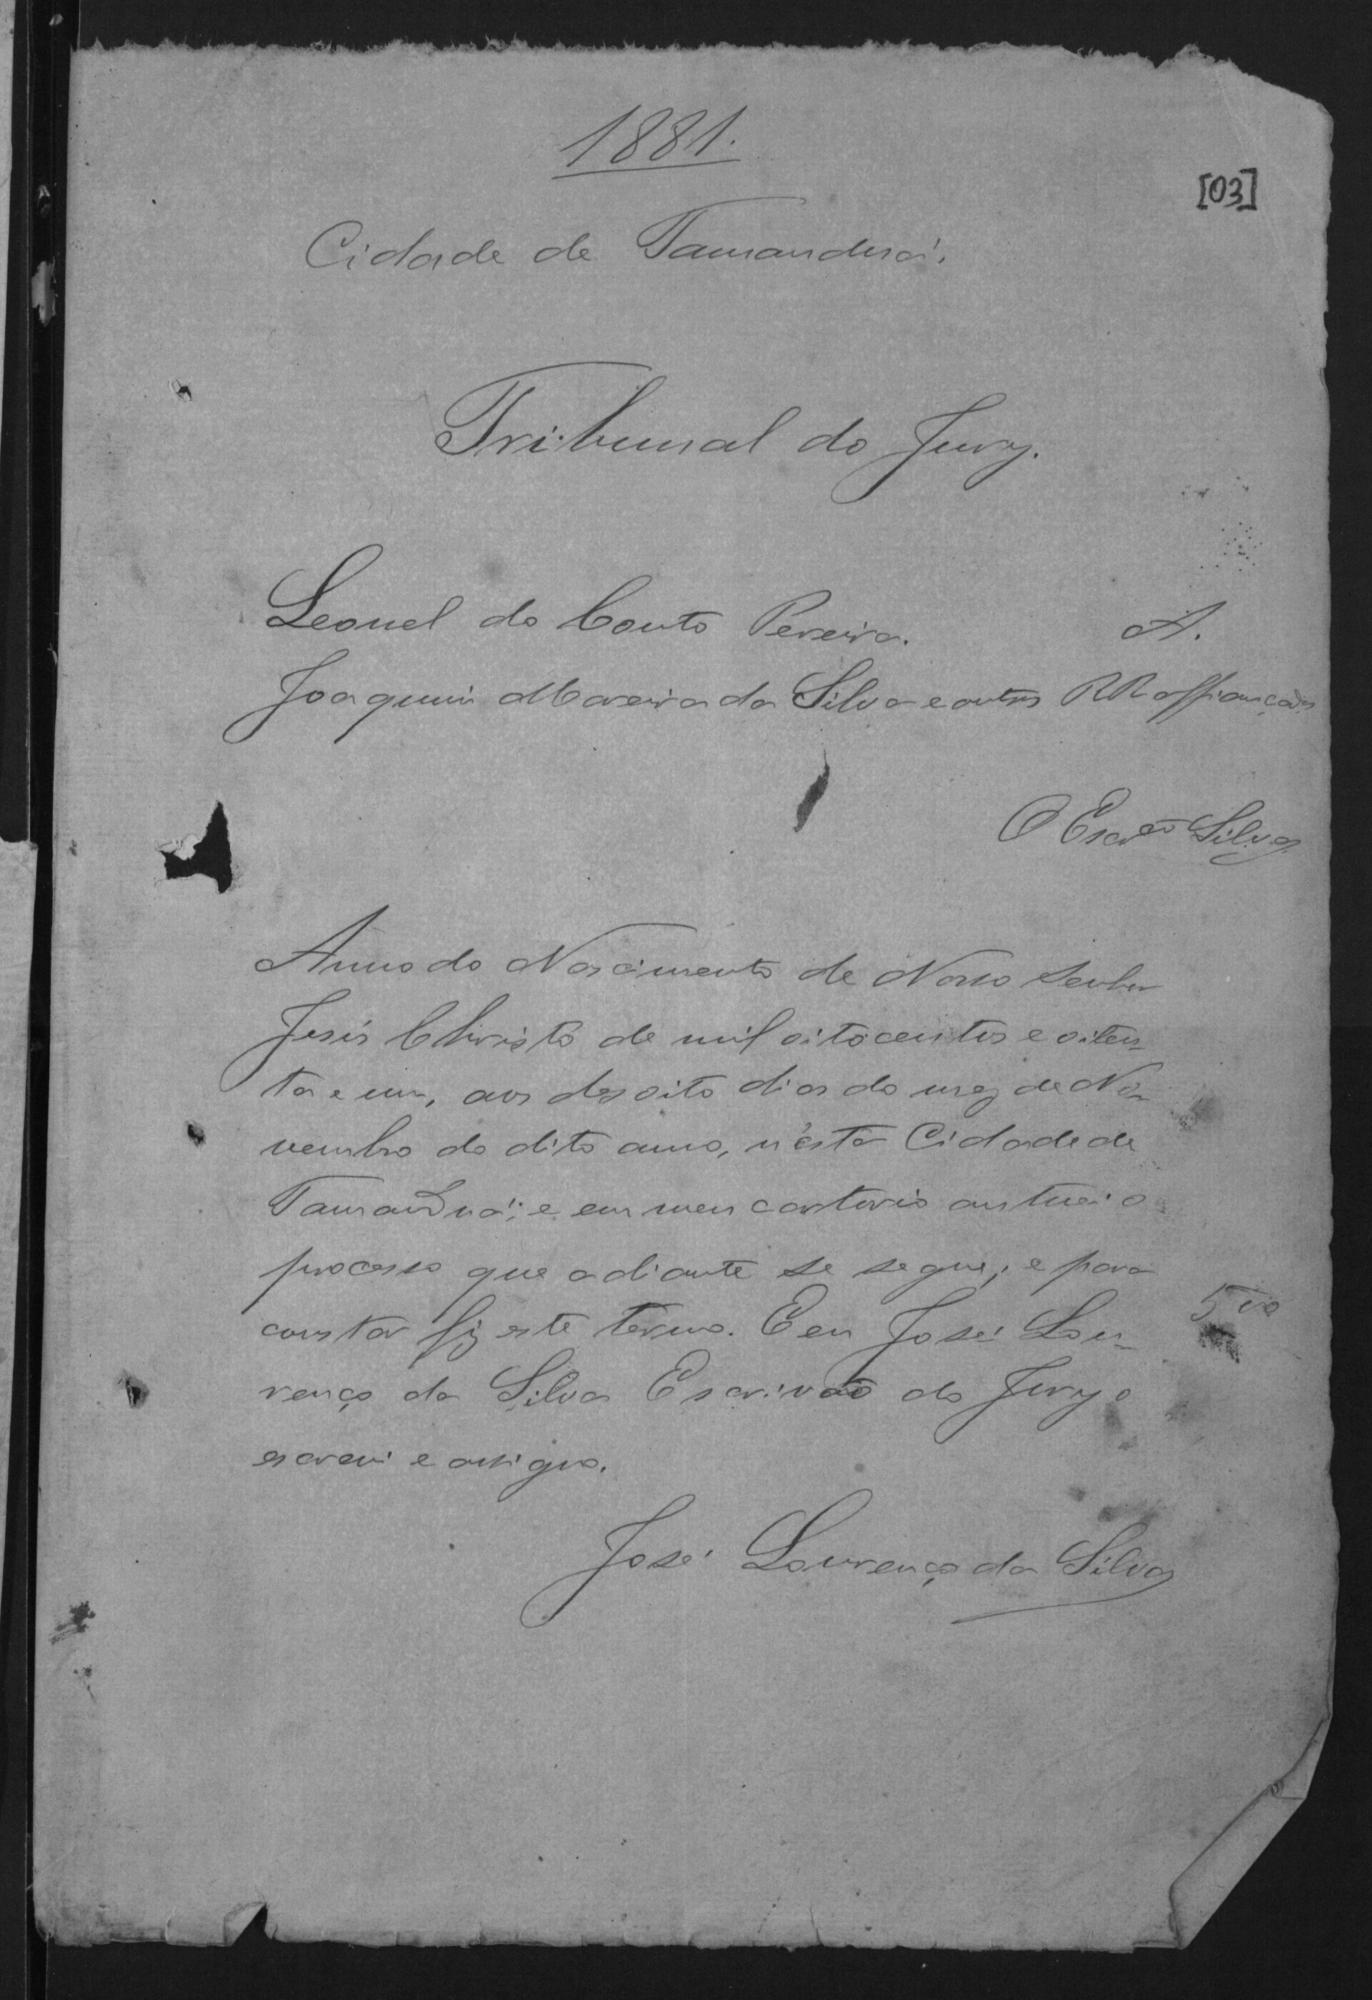 1881.
[03]
Cidade de Tamanduá.
Tribunal do Jury.
Leonel do Couto Pereira. A.
Joaquim Moreira da Silva e outros RR affiançados
O Escr.ão Silva
Anno do Nascimento de Nosso Senhor
Jesús Christo de mil oitocentos e oiten-
ta e um, aos desoito dias do mez de No-
vembro do dito anno, n'esta Cidade de
Tamanduá; e em meu cartorio autuei o
processo que adiante se segue; e para
constar fiz este termo. E eu José Lou-
renço da Silva Escrivão do Jury o
escrevi e assigno.
José Lourenço da Silva